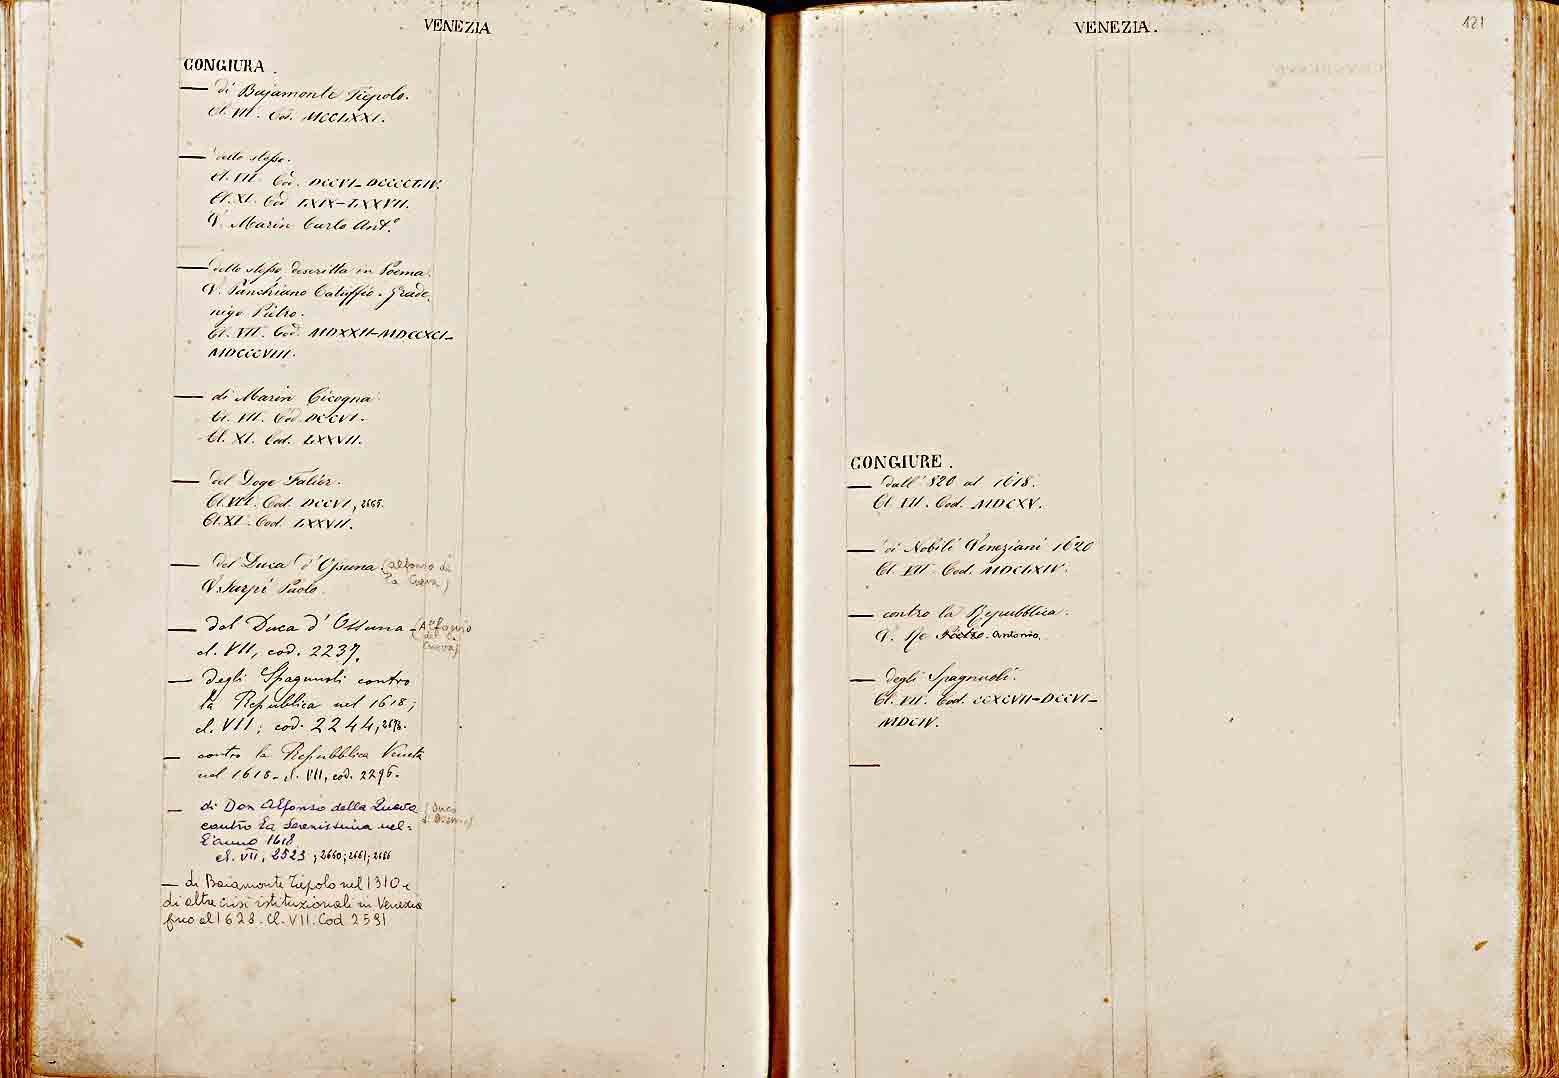 VENEZIA
CONGIURA.
— di Bajamonte Tiepolo.
Cl. VII. Cod. MCCLXXI.
— detto stesso.
Cl. VII. Cod. DCCVI–DCCCCLIV.
Cl. XI. Cod. LXIX–LXXVII.
V. Marin Carlo Ant.º
— detto stesso descritta in Poema.
V. Catuffio. Grade
nigo Pietro.
Cl. VII. Cod. MDXXII–MDCCXCI–
MDCCCVIII.
— di Marin Cicogna
Cl. VII. Cod. DCCVI.
Cl. XI. Cod. LXXVII.
— del Doge Falier.
Cl. VII. Cod. DCCVI, 2665.
Cl. XI. Cod. LXXVII.
— del Duca d'Ossuna. (Alfonso de
la Cueva)
V. Sarpi Paolo.
— del Duca d'Ossuna – (Alfonso
de la
Cueva)
cl. VII, cod. 2237.
— degli Spagnuoli contro
la Repubblica nel 1618;
cl. VII; cod. 2244,
— contro la Repubblica Veneta
nel 1618. cl. VII, cod. 2296.
— di Don Alfonso della Queva (Duca
d'Ossuna)
contro la Serenissima nel=
l'anno 1618
cl. VII, 2523; 2660; 2661; 2686
— di Baiamonte Tiepolo nel 1310 e
di altre crisi istituzionali in Venezia
fino al 1628. Cl. VII. Cod 2591
VENEZIA.
121
CONGIURE.
— dall' 820 al 1618.
Cl. VII. Cod. MDCXV.
— di Nobili Veneziani 1620
Cl. VII. Cod. MDCLXIV.
— contro la Repubblica.
V. Re Antonio.
— degli Spagnuoli.
Cl. VII. Cod. CCXCVII–DCCVI–
MDCIV.
—